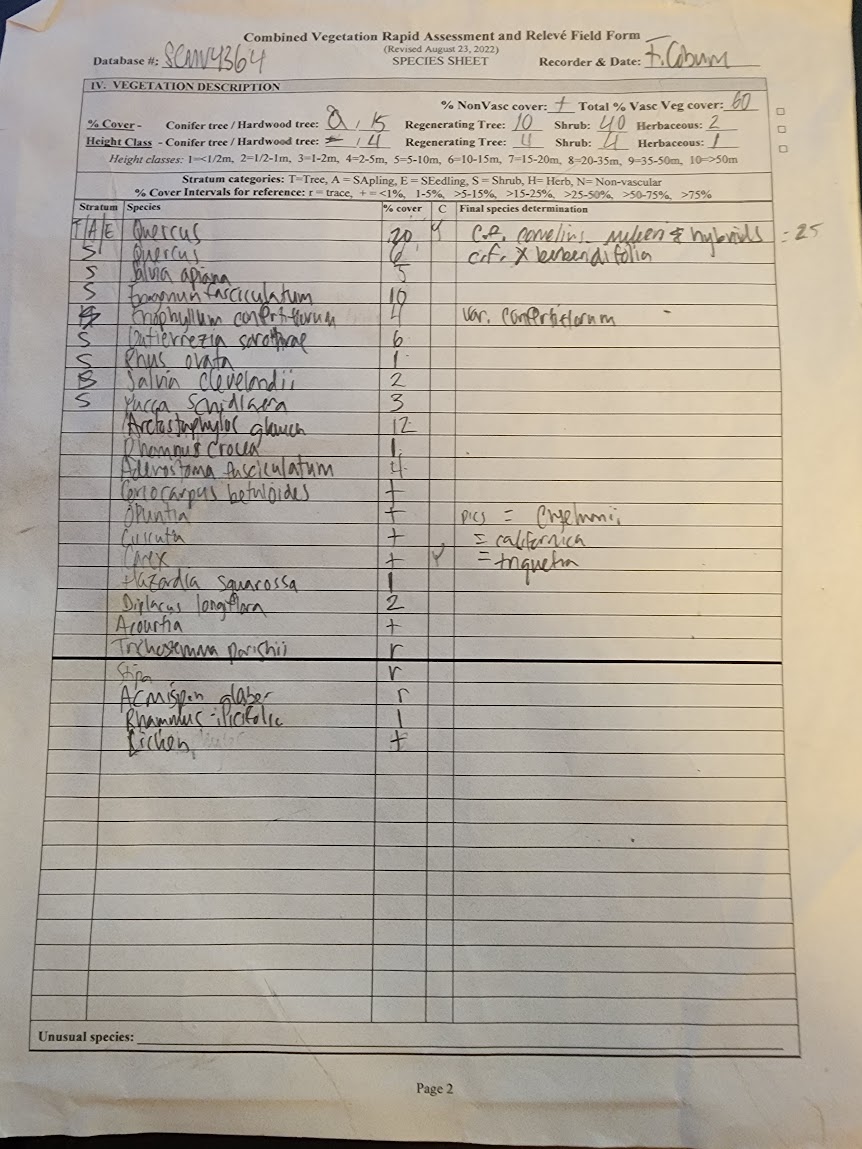 Combined Vegetation Rapid Assessment and Relevé Field Form
(Revised August 23, 2022)
Database #: SCMV4364 SPECIES SHEET Recorder & Date: T. Coburn
IV. VEGETATION DESCRIPTION
% NonVasc cover: + Total % Vasc Veg cover: 60
% Cover - Conifer tree / Hardwood tree: 0 / 15 Regenerating Tree: 10 Shrub: 40 Herbaceous: 2
Height Class - Conifer tree / Hardwood tree: / 4 Regenerating Tree: 4 Shrub: 4 Herbaceous: 1
Height classes: 1=<1/2m, 2=1/2-1m, 3=1-2m, 4=2-5m, 5=5-10m, 6=10-15m, 7=15-20m, 8=20-35m, 9=35-50m, 10=>50m
Stratum categories: T=Tree, A = SApling, E = SEedling, S = Shrub, H= Herb, N= Non-vascular
% Cover Intervals for reference: r = trace, + = <1%, 1-5%, >5-15%, >15-25%, >25-50%, >50-75%, >75%
Stratum Species % cover C Final species determination
T/A/E Quercus 20 Y c.f. & hybrids = 25
S Quercus 6 c.f. X berberidifolia
S Salvia apiana 5
S fasciculatum 10
Eriophyllum confertiflorum 4 var. confertiflorum
S Gutierrezia sarothrae 6
S Rhus ovata 1
Salvia clevelandii 2
S Yucca 3
Arctostaphylos glauca 12
Rhamnus crocea 1
Adenostoma fasciculatum 4
betuloides +
Opuntia + pics =
Cuscuta + = californica
Carex + Y = triquetra
Hazardia squarossa 1
Diplacus longiflora 2
Acourtia +
parishii r
Stipa r
Acmispon glaber r
Rhamnus ilicifolic 1
Lichen +
Unusual species:
Page 2